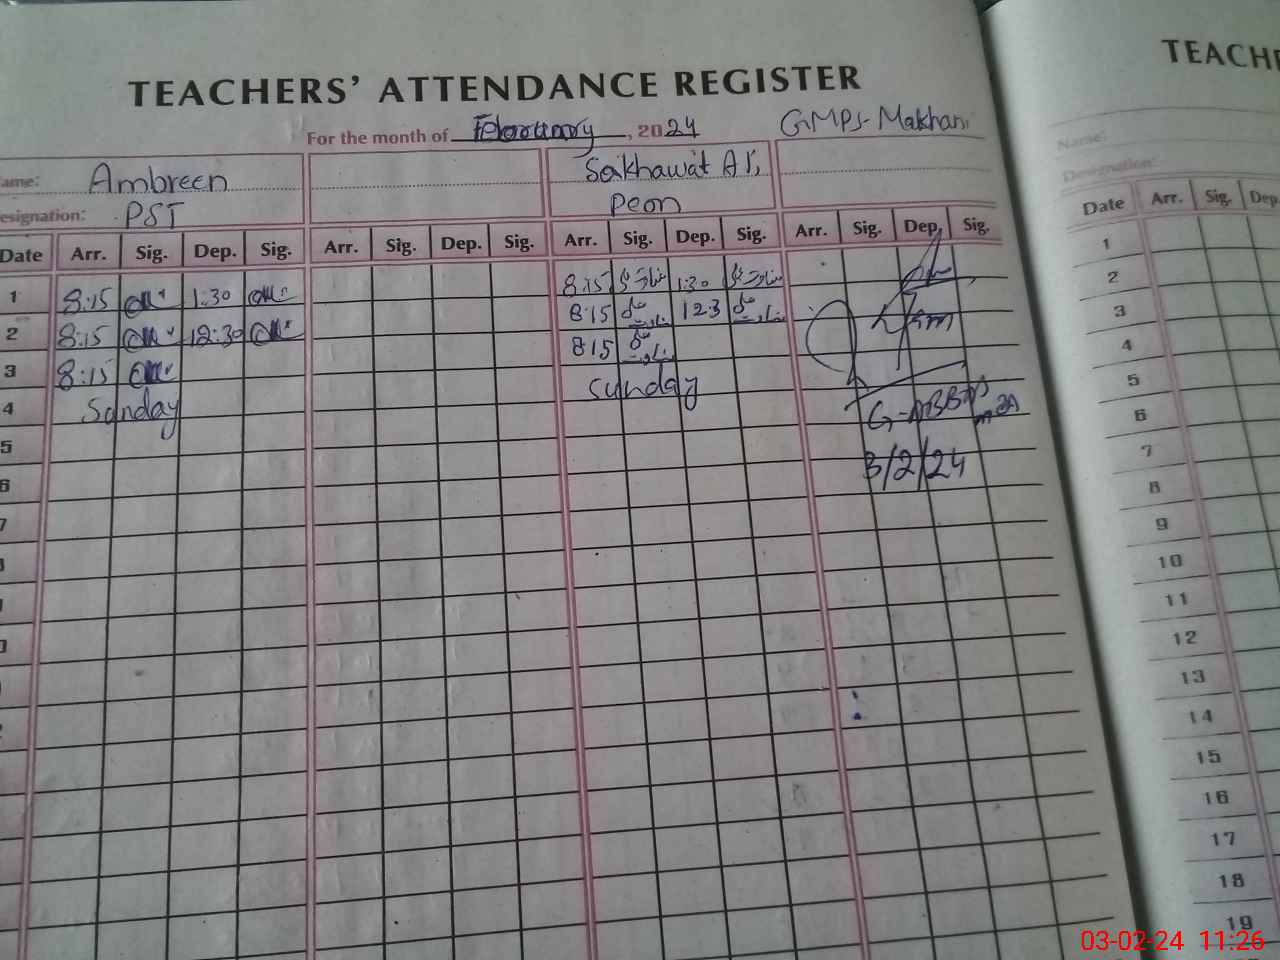 TEACHERS' ATTENDANCE REGISTER
For the month of February, 2024 GMPS-Makhani
ame: Ambreen Sakhawat Ali
esignation: PST Peon
Date Arr. Sig. Dep. Sig. Arr. Sig. Dep. Sig. Arr. Sig. Dep. Sig. Arr. Sig. Dep. Sig.
1 8:15 1:30 8:15 1:30
2 8:15 12:30 8:15 123
3 8:15 8:15
4 Sunday Sunday
5
6 G-ABBAS
7 3/2/24
TEACHE
Name:
Designation:
Date Arr. Sig. Dep.
1
2
3
4
5
6
7
8
9
10
11
12
13
14
15
16
17
18
19
03-02-24 11:26